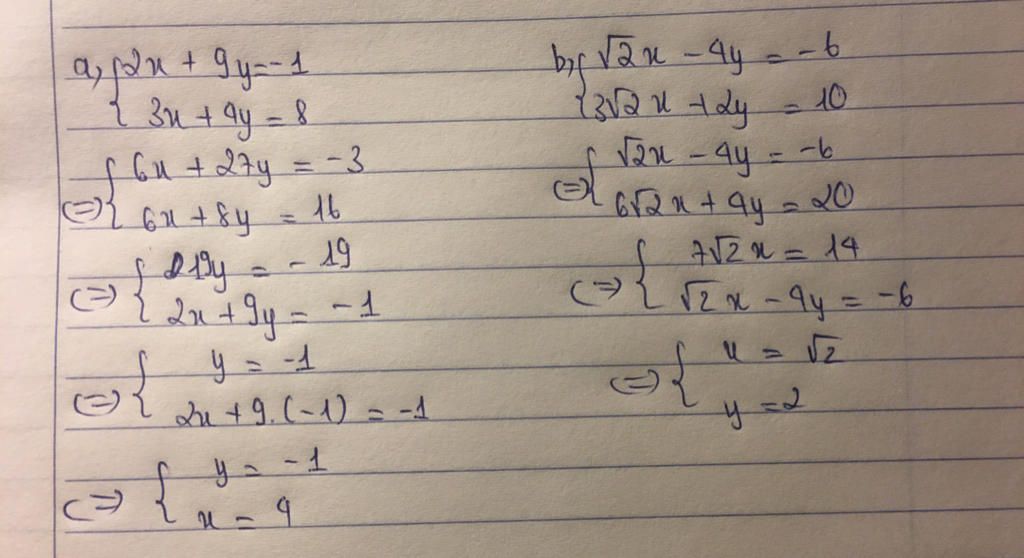 a, { 2x + 9y = -1
3x + 4y = 8
⇔ { 6x + 27y = -3
6x + 8y = 16
⇔ { 19y = -19
2x + 9y = -1
⇔ { y = -1
2x + 9.(-1) = -1
⇔ { y = -1
x = 4
b, { √2x - 4y = -6
3√2x + 2y = 10
⇔ { √2x - 4y = -6
6√2x + 4y = 20
⇔ { 7√2x = 14
√2x - 4y = -6
⇔ { x = √2
y = 2